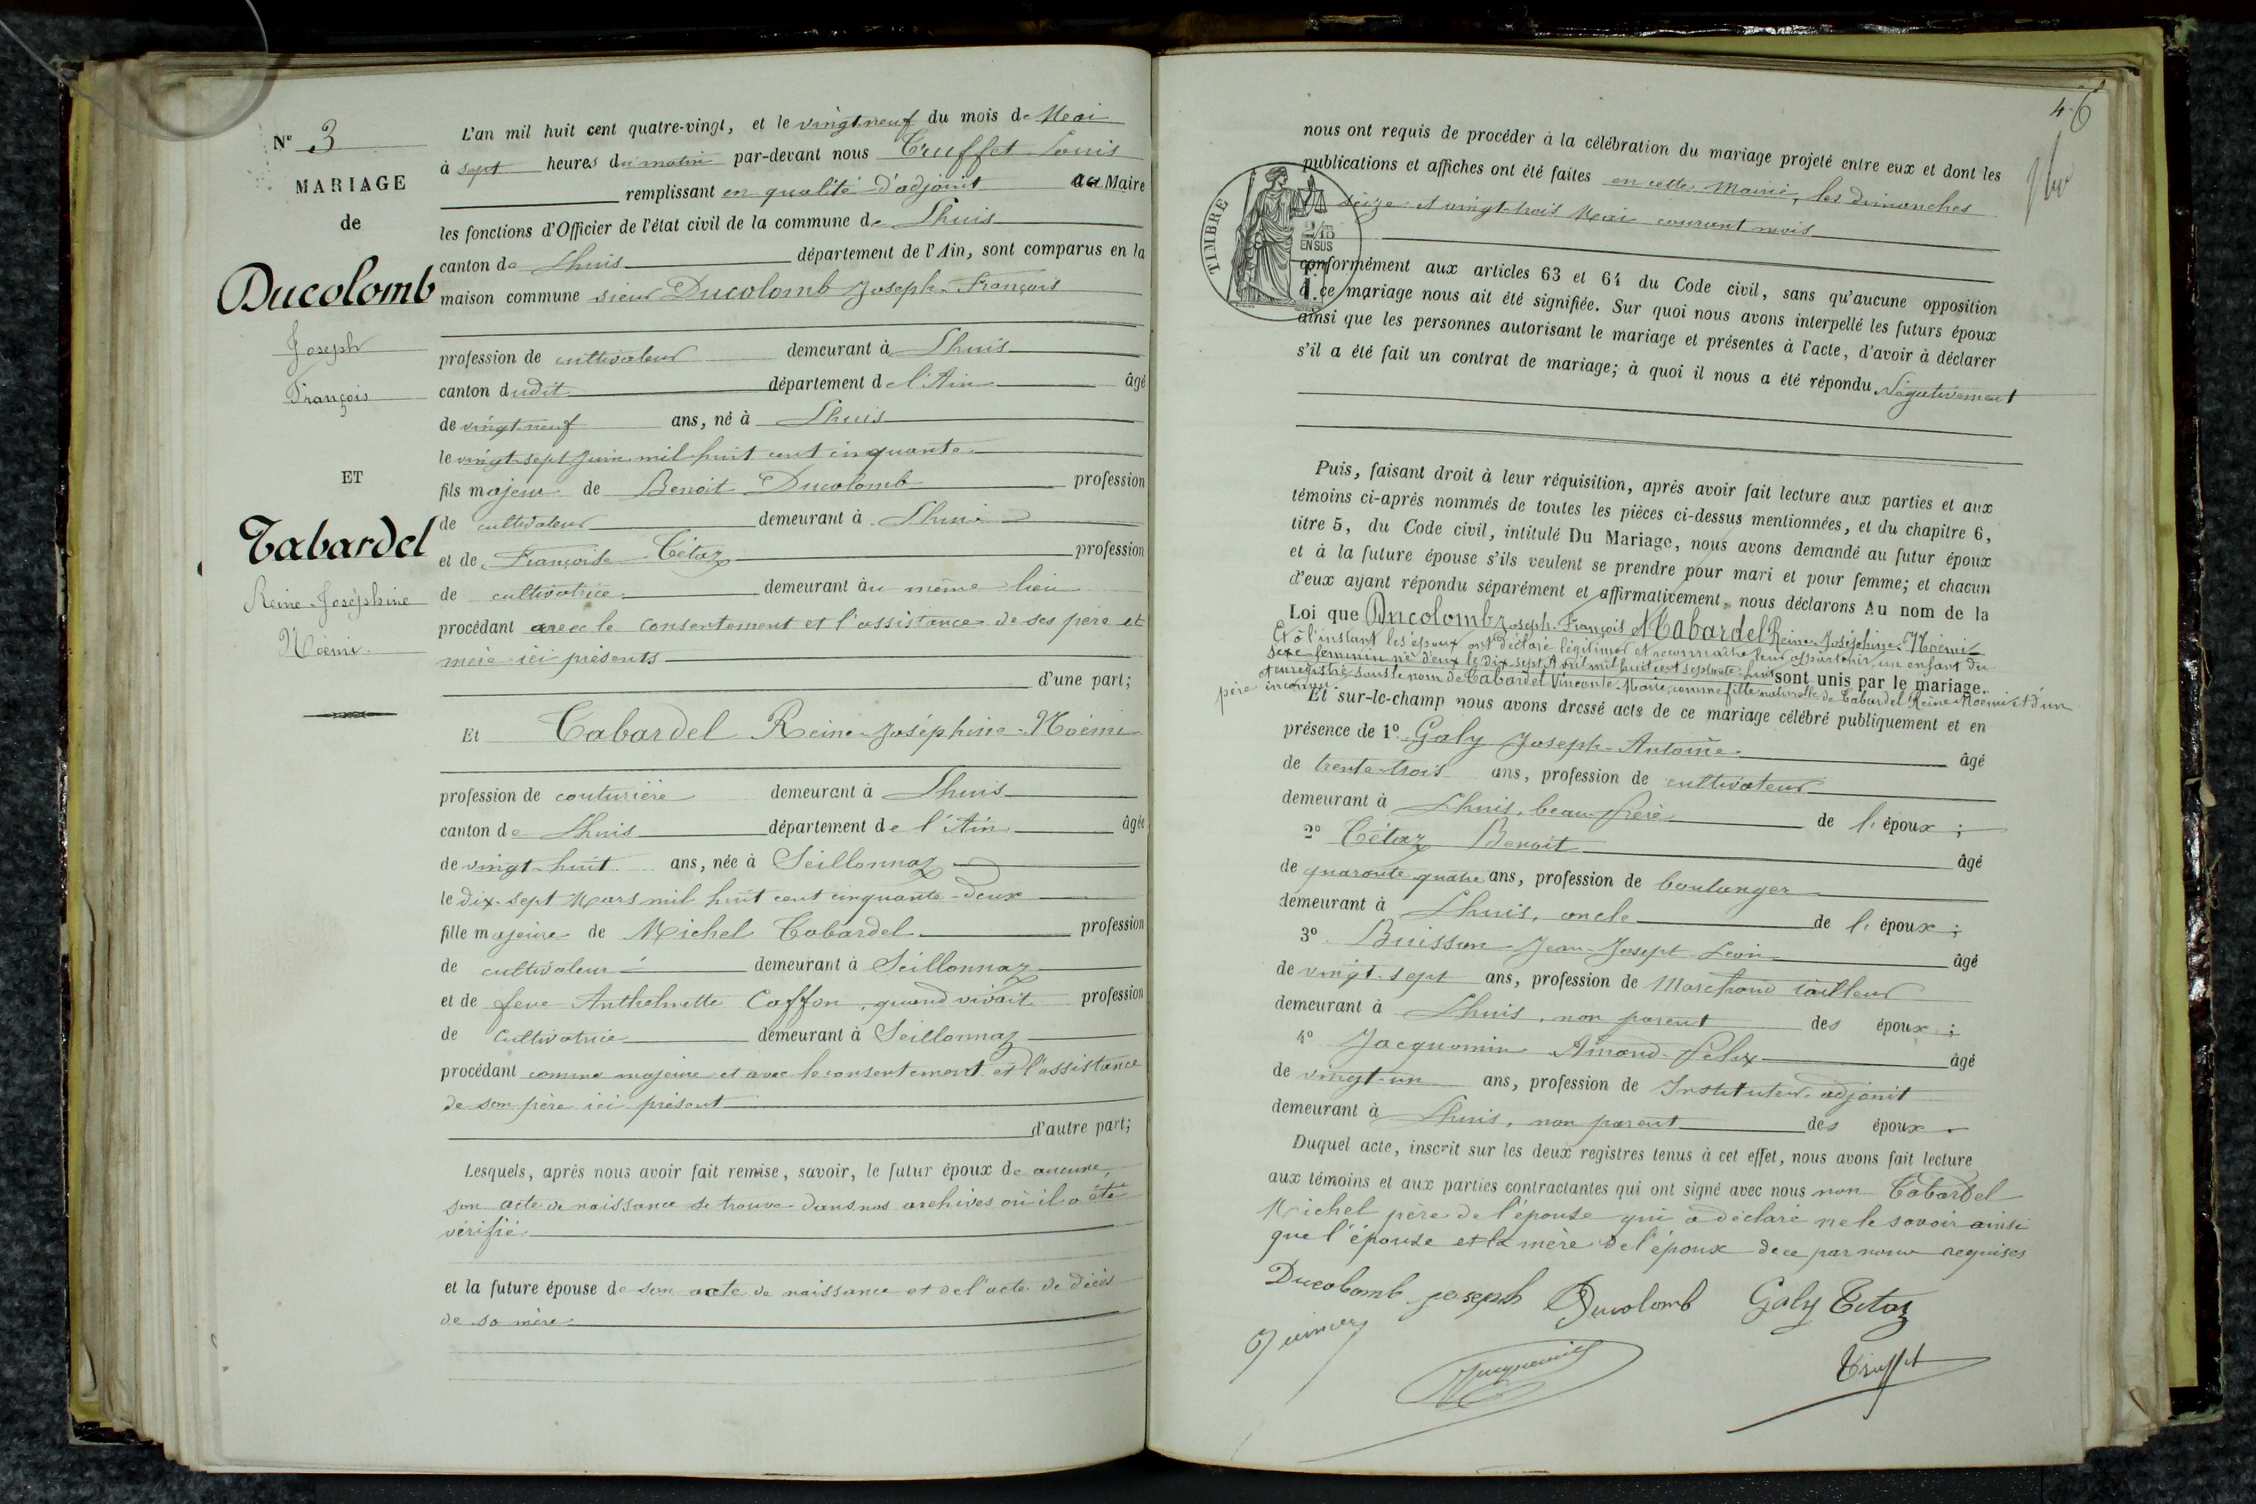 Nº 3
MARIAGE
de
Ducolomb
Joseph
François
ET
Tabardel
Reine-Joséphine
Noémi
L'an mil huit cent quatre-vingt, et le vingt-neuf du mois de Mai
à sept heures du matin par-devant nous Truffet Louis
remplissant en qualité d'adjoint au Maire
les fonctions d'Officier de l'état civil de la commune de Lhuis
canton de Lhuis département de l'Ain, sont comparus en la
maison commune sieur Ducolomb Joseph-François
profession de cultivateur demeurant à Lhuis
canton dudit département de l'Ain âgé
de vingt-neuf ans, né à Lhuis
le vingt-sept Juin mil huit cent cinquante
fils majeur de Benoit Ducolomb profession
de cultivateur demeurant à Lhuis
et de Françoise Tétaz profession
de cultivatrice demeurant au même lieu
procédant avec le consentement et l'assistance de ses père et
mère ici présents
d'une part;
Et Tabardel Reine-Joséphine-Noémi
profession de couturière demeurant à Lhuis
canton de Lhuis département de l'Ain âgée
de vingt-huit ans, née à Seillonnaz
le dix-sept Mars mil huit cent cinquante-deux
fille majeure de Michel Tabardel profession
de cultivateur demeurant à Seillonnaz
et de feue Anthelmette Caffon, quand vivait profession
de cultivatrice demeurant à Seillonnaz
procédant comme majeure et avec le consentement et l'assistance
de son père ici présent
d'autre part;
Lesquels, après nous avoir fait remise, savoir, le futur époux de aucune,
son acte de naissance se trouve dans nos archives où il a été
vérifié
et la future épouse de son acte de naissance et de l'acte de décès
de sa mère
46
nous ont requis de procéder à la célébration du mariage projeté entre eux et dont les
publications et affiches ont été faites en cette Mairie, les dimanches
seize et vingt-trois Mai courant mois
TIMBRE
2/10
EN SUS
conformément aux articles 63 et 64 du Code civil, sans qu'aucune opposition
à ce mariage nous ait été signifiée. Sur quoi nous avons interpellé les futurs époux
ainsi que les personnes autorisant le mariage et présentes à l'acte, d'avoir à déclarer
s'il a été fait un contrat de mariage; à quoi il nous a été répondu Négativement
Puis, faisant droit à leur réquisition, après avoir fait lecture aux parties et aux
témoins ci-après nommés de toutes les pièces ci-dessus mentionnées, et du chapitre 6,
titre 5, du Code civil, intitulé Du Mariage, nous avons demandé au futur époux
et à la future épouse s'ils veulent se prendre pour mari et pour femme; et chacun
d'eux ayant répondu séparément et affirmativement, nous déclarons Au nom de la
Loi que Ducolomb Joseph-François et Tabardel Reine-Joséphine-Noémi
Et à l'instant les époux ont déclaré légitimer et reconnaître leur appartenir, un enfant du
sexe féminin né d'eux le dix sept Avril mil huit cent septante-huit sont unis par le mariage.
et enregistré sous le nom de Tabardel Vincente-Marie, comme fille naturelle de Tabardel Reine-Noémi et d'un
père inconnu.
Et sur-le-champ nous avons dressé acte de ce mariage célébré publiquement et en
présence de 1º Galy Joseph-Antoine âgé
de trente-trois ans, profession de cultivateur
demeurant à Lhuis, beau-frère de l'époux;
2º Tétaz Benoit âgé
de quarante quatre ans, profession de boulanger
demeurant à Lhuis, oncle de l'époux;
3º Buisson Jean-Joseph Léon âgé
de vingt-sept ans, profession de Marchand tailleur
demeurant à Lhuis, non parent des époux;
4º Jacquemin Amand-Félix âgé
de vingt-un ans, profession de Instituteur adjoint
demeurant à Lhuis, non parent des époux.
Duquel acte, inscrit sur les deux registres tenus à cet effet, nous avons fait lecture
aux témoins et aux parties contractantes qui ont signé avec nous non Tabardel
Michel père de l'épouse qui a déclaré ne le savoir ainsi
que l'épouse et la mère de l'époux de ce par nous requises
Ducolomb joseph Ducolomb Galy Tétaz
Jacquemin
Truffet